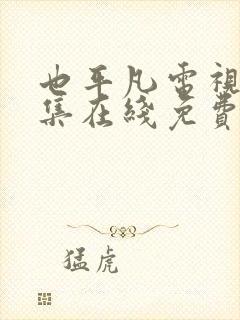 也平凡電視
集在綫免費
猛虎